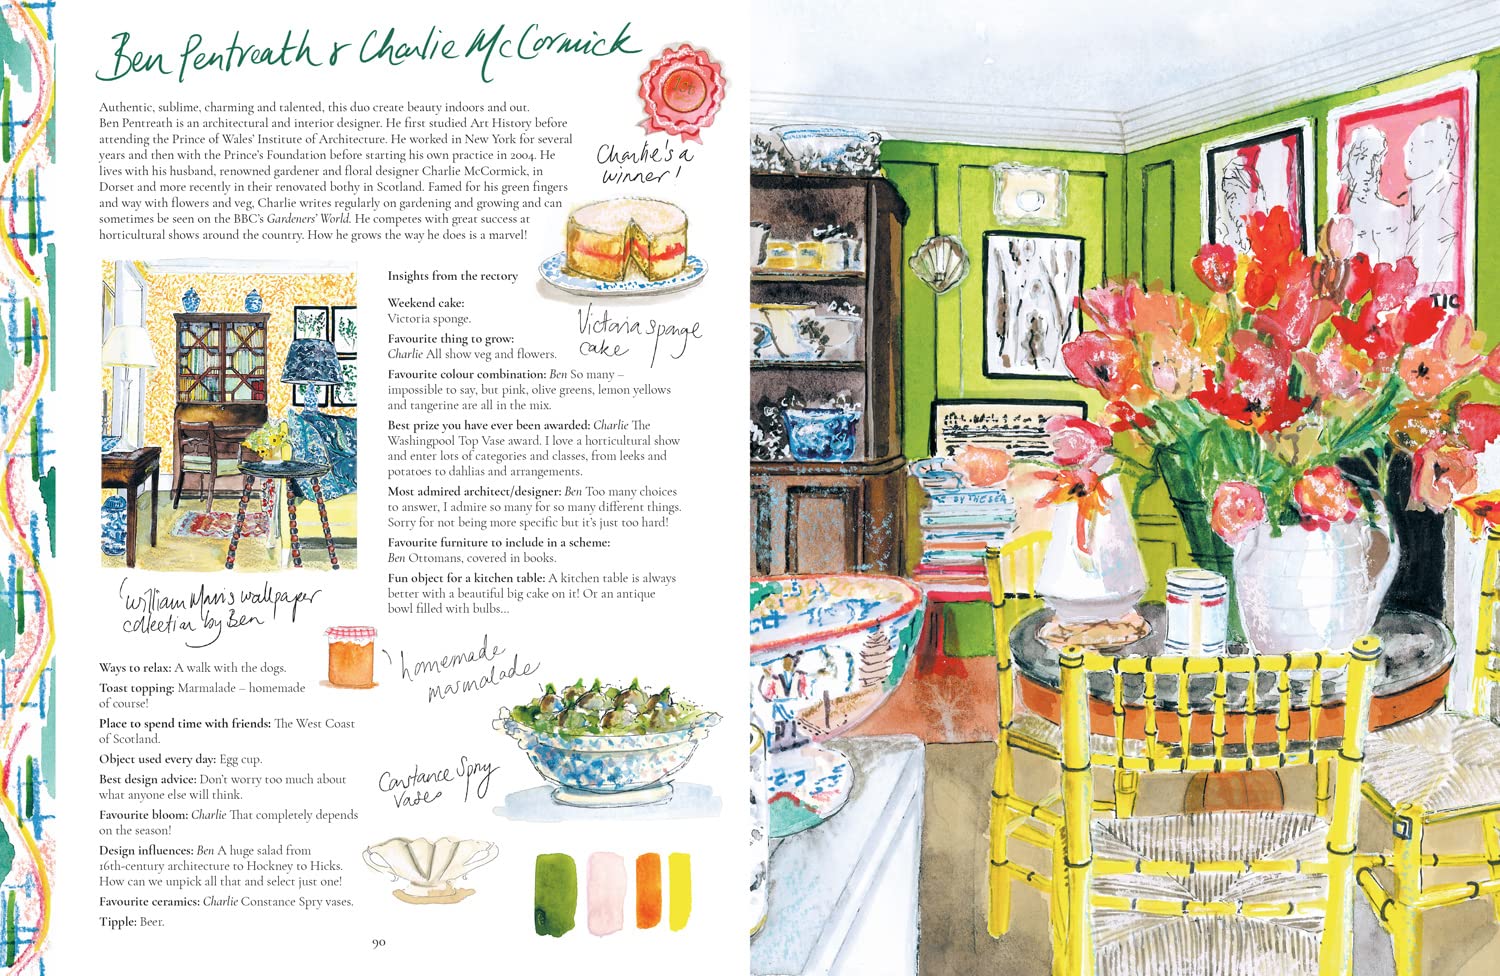 Ben Pentreath & Charlie McCormick
Authentic, sublime, charming and talented, this duo create beauty indoors and out.
Ben Pentreath is an architectural and interior designer. He first studied Art History before
attending the Prince of Wales' Institute of Architecture. He worked in New York for several
years and then with the Prince's Foundation before starting his own practice in 2004. He
lives with his husband, renowned gardener and floral designer Charlie McCormick, in
Dorset and more recently in their renovated bothy in Scotland. Famed for his green fingers
and way with flowers and veg, Charlie writes regularly on gardening and growing and can
sometimes be seen on the BBC's Gardeners' World. He competes with great success at
horticultural shows around the country. How he grows the way he does is a marvel!
1st
Charlie's a
winner!
Victoria sponge
cake
Insights from the rectory
Weekend cake:
Victoria sponge.
Favourite thing to grow:
Charlie All show veg and flowers.
Favourite colour combination: Ben So many –
impossible to say, but pink, olive greens, lemon yellows
and tangerine are all in the mix.
Best prize you have ever been awarded: Charlie The
Washingpool Top Vase award. I love a horticultural show
and enter lots of categories and classes, from leeks and
potatoes to dahlias and arrangements.
Most admired architect/designer: Ben Too many choices
to answer, I admire so many for so many different things.
Sorry for not being more specific but it's just too hard!
Favourite furniture to include in a scheme:
Ben Ottomans, covered in books.
Fun object for a kitchen table: A kitchen table is always
better with a beautiful big cake on it! Or an antique
bowl filled with bulbs...
William Morris wallpaper
collection by Ben
homemade
marmalade
Ways to relax: A walk with the dogs.
Toast topping: Marmalade – homemade
of course!
Place to spend time with friends: The West Coast
of Scotland.
Object used every day: Egg cup.
Best design advice: Don't worry too much about
what anyone else will think.
Favourite bloom: Charlie That completely depends
on the season!
Design influences: Ben A huge salad from
16th-century architecture to Hockney to Hicks.
How can we unpick all that and select just one!
Favourite ceramics: Charlie Constance Spry vases.
Tipple: Beer.
Constance Spry
vases
90
TIC
BY THE SEA